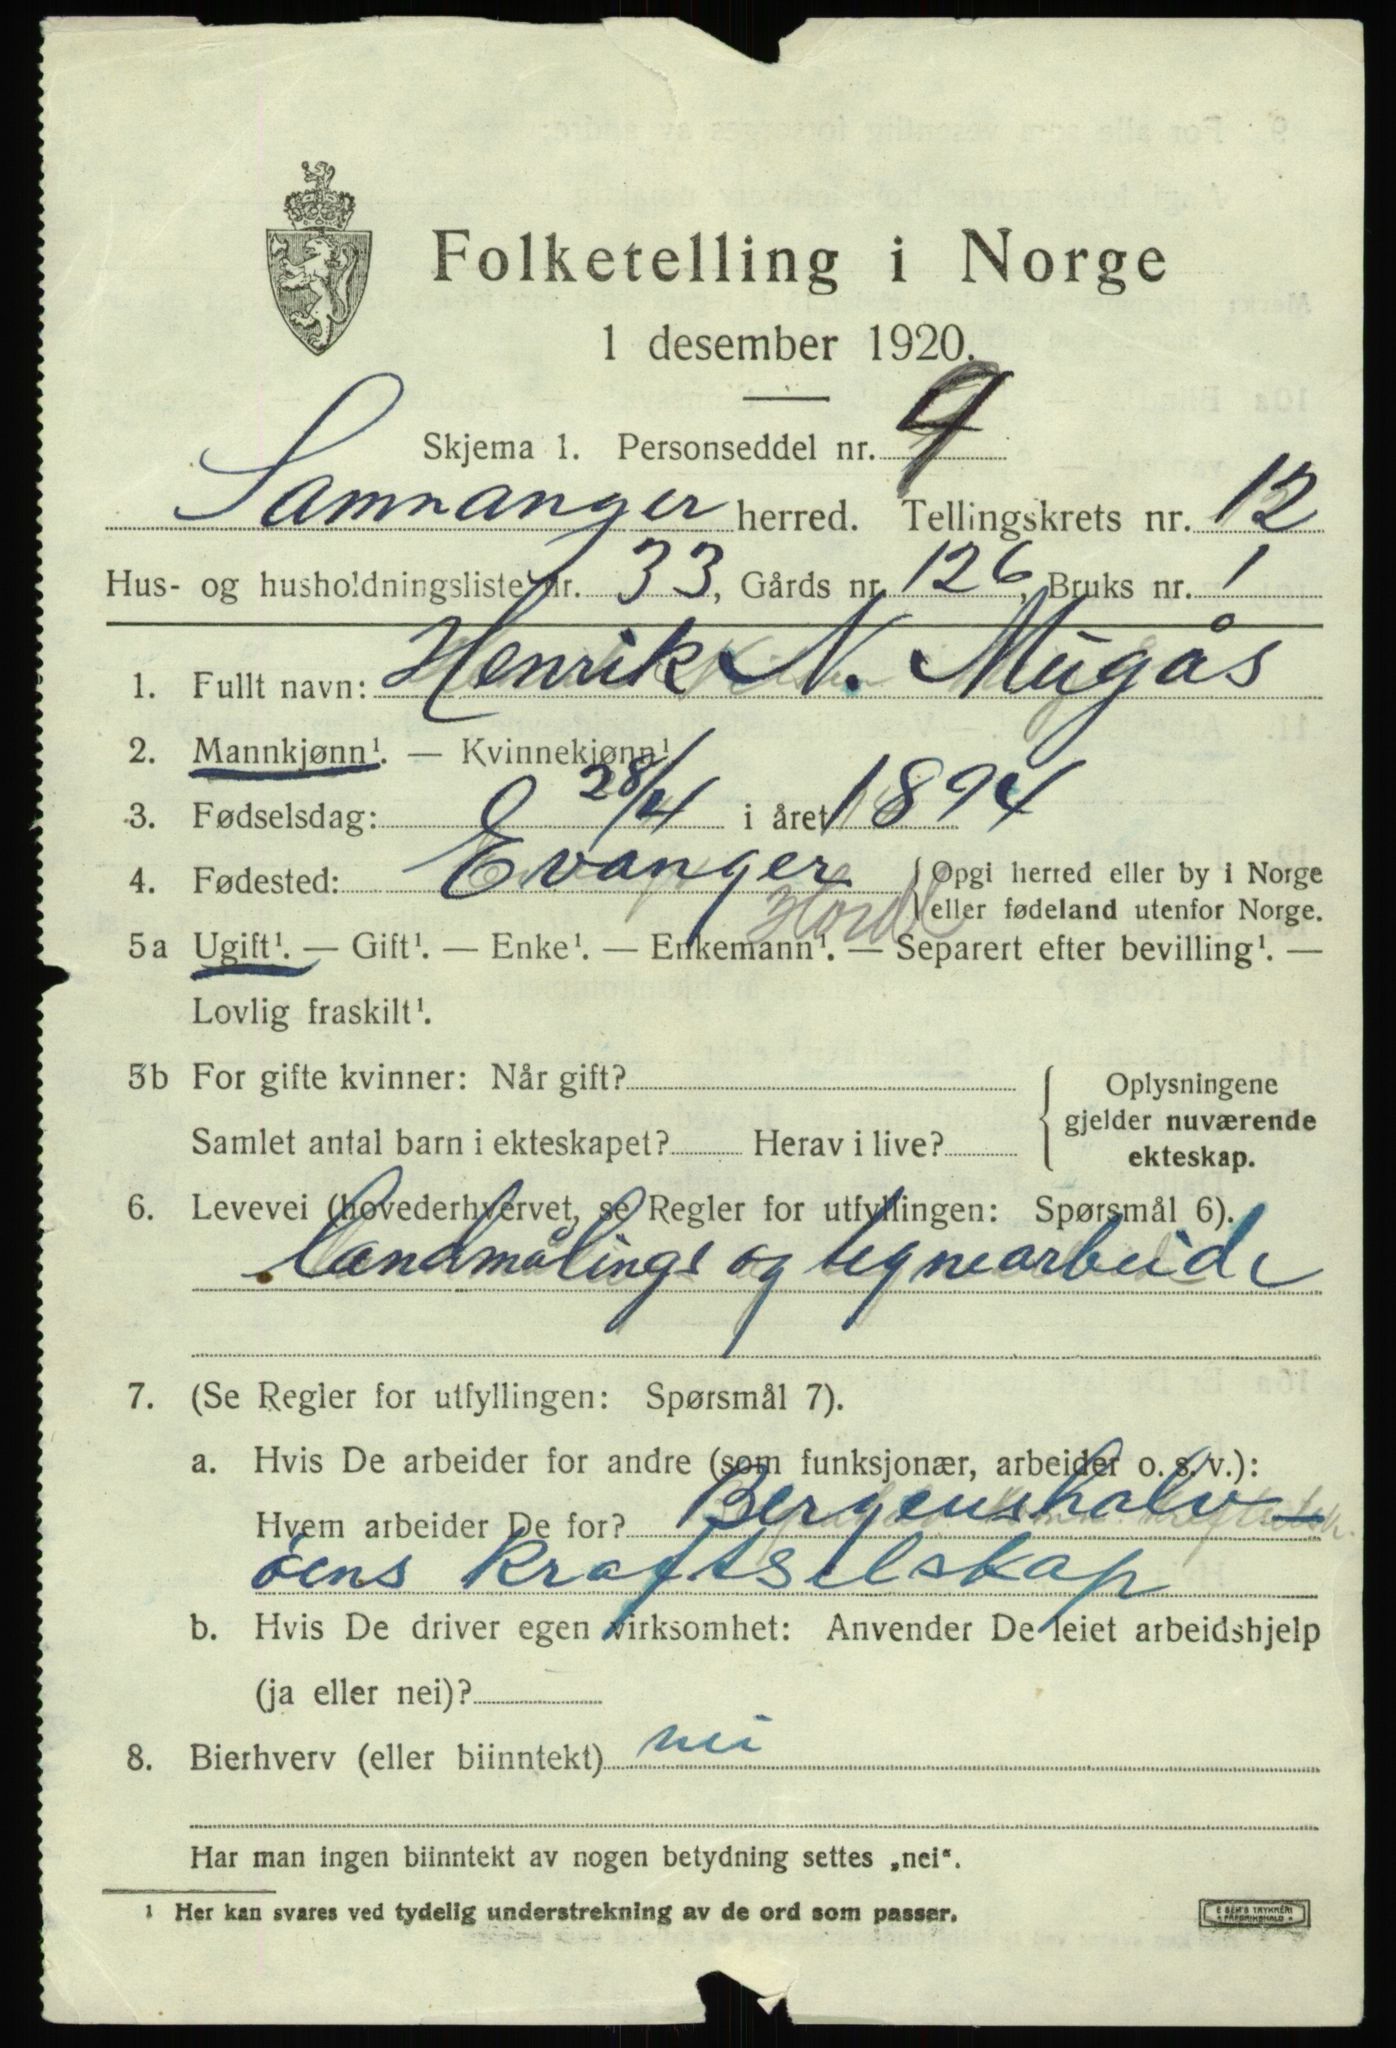 Folketelling i Norge
1 desember 1920.
Skjema 1. Personseddel nr. 9
Samnanger herred. Tellingskrets nr. 12
Hus- og husholdningsliste nr. 33, Gårds nr. 126, Bruks nr. 1
1. Fullt navn: Henrik N. Mugås
2. Mannkjønn¹. — Kvinnekjønn¹.
3. Fødselsdag: 28/4 i året 1894
4. Fødested: Evanger { Opgi herred eller by i Norge
Hordl eller fødeland utenfor Norge.
5a Ugift¹. — Gift¹. — Enke¹. — Enkemann¹. — Separert efter bevilling¹. —
Lovlig fraskilt¹.
5b For gifte kvinner: Når gift? { Oplysningene
gjelder nuværende
Samlet antal barn i ekteskapet? Herav i live? ekteskap.
6. Levevei (hovederhvervet, se Regler for utfyllingen: Spørsmål 6).
Landmålings og tegnearbeide
7. (Se Regler for utfyllingen: Spørsmål 7).
a. Hvis De arbeider for andre (som funksjonær, arbeider o. s. v.):
Hvem arbeider De for? Bergenshalv-
öens Kraftselskap
b. Hvis De driver egen virksomhet: Anvender De leiet arbeidshjelp
(ja eller nei)?
8. Bierhverv (eller biinntekt) nei
Har man ingen biinntekt av nogen betydning settes „nei".
¹ Her kan svares ved tydelig understrekning av de ord som passer.
E SEM'S TRYKKERI
FREDRIKSHALD